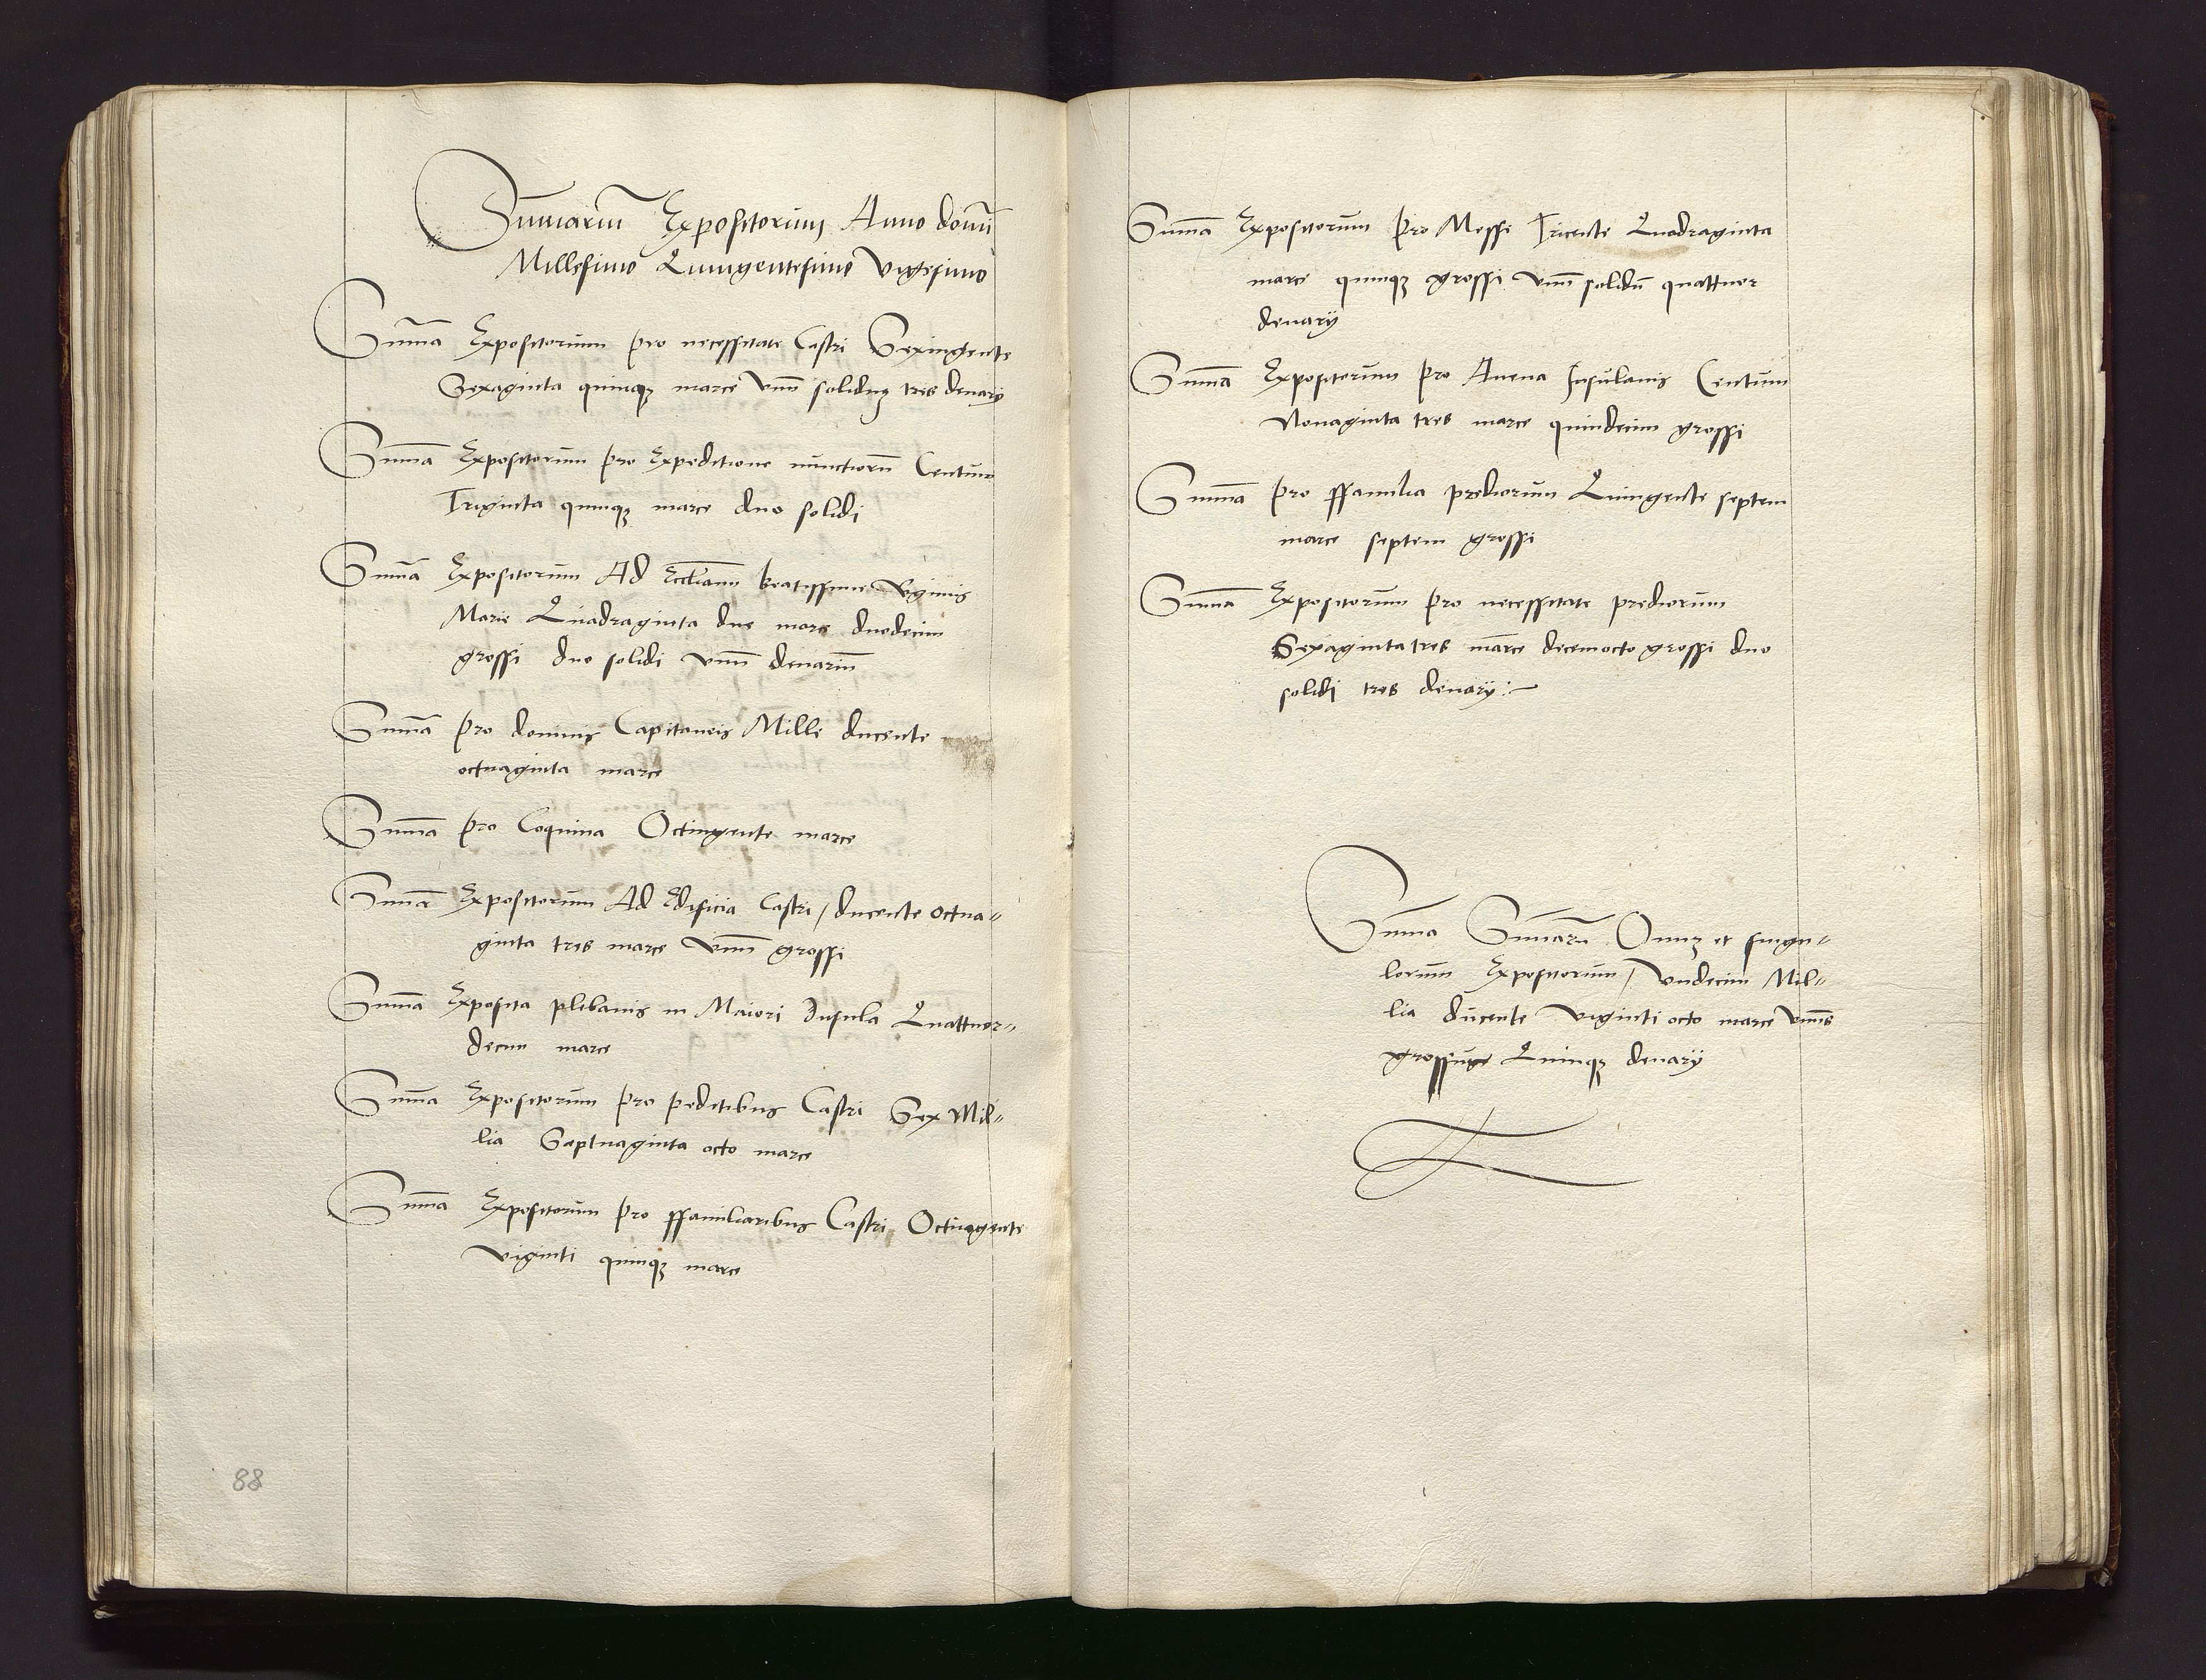 Sumariũ Expositorum Anno domĩ
Millesimo Quingentesimo Vigesimo
Suma Expositorum pro necessitate Castri Sexingente
Sexaginta quinqȝ marce Vnũ soliduȝ tres denarÿ
Suma Expositorum pro Expeditione nunctiorũ Centum
Triginta quinqȝ marce duo solidi
Suma Expositorum Ad Eccliam beatissime Vginis
Marie Quadraginta due marce duodecim
grossi duo solidi Vnũ denariũ
Suma pro dominis Capitaneis Mille ducente
octuaginta marce
Suma pro Coquina Octingente marce
Suma Expositorum Ad Edificia Castri / ducente octua=
ginta tres marce Vnũ grossi
Suma Exposita plibanis in Maiori Insula Quattuor=
decim marce
Suma Expositorum pro peditibus Castri Sex Mil=
lia Septuaginta octo marce
Suma Expositorum pro ffamiliaribus Castri Octingente
Viginti quinqȝ marce
88
Suma Expositorum pro Messe Tricente Quadraginta
marce quinqȝ grossi Vnũ solidũ quattuor
denarÿ
Suma Expositorum pro Auena Insulanis Centum
Nonaginta tres marce quindecim grossi
Suma pro ffamilia prediorum Quingente septem
marce septem grossi
Suma Expositorum pro necessitate prediorum
Sexaginta tres marce decemocto grossi duo
solidi tres denarÿ :~
Suma Sumarũ Omnȝ et singu=
lorum Expositorum / Vndecim Mil=
lia ducente Viginti octo marce Vnus
grossus Quinqȝ denarÿ